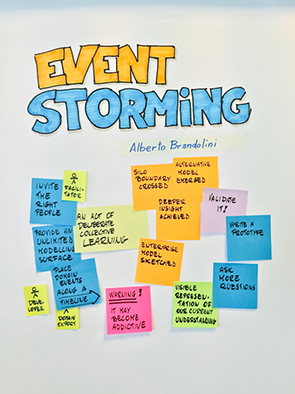 EVENT
STORMING
Alberto Brandolini
INVITE
THE
RIGHT
PEOPLE
FACILI-
TATOR
PROVIDE AN
UNLIMITED
MODELLING
SURFACE
PLACE
DOMAIN
EVENTS
ALONG A
TIMELINE
DEVE-
LOPER
DOMAIN
EXPERT
AN ACT OF
DELIBERATE
COLLECTIVE
LEARNING
WARNING!
IT MAY
BECOME
ADDICTIVE
SILO
BOUNDARY
CROSSED
ALTERNATIVE
MODEL
EMERGED
DEEPER
INSIGHT
ACHIEVED
ENTERPRISE
MODEL
SKETCHED
VISIBLE
REPRESEN-
TATION OF
OUR CURRENT
UNDERSTANDING
VALIDATE
IT!
WRITE A
PROTOTYPE
ASK
MORE
QUESTIONS